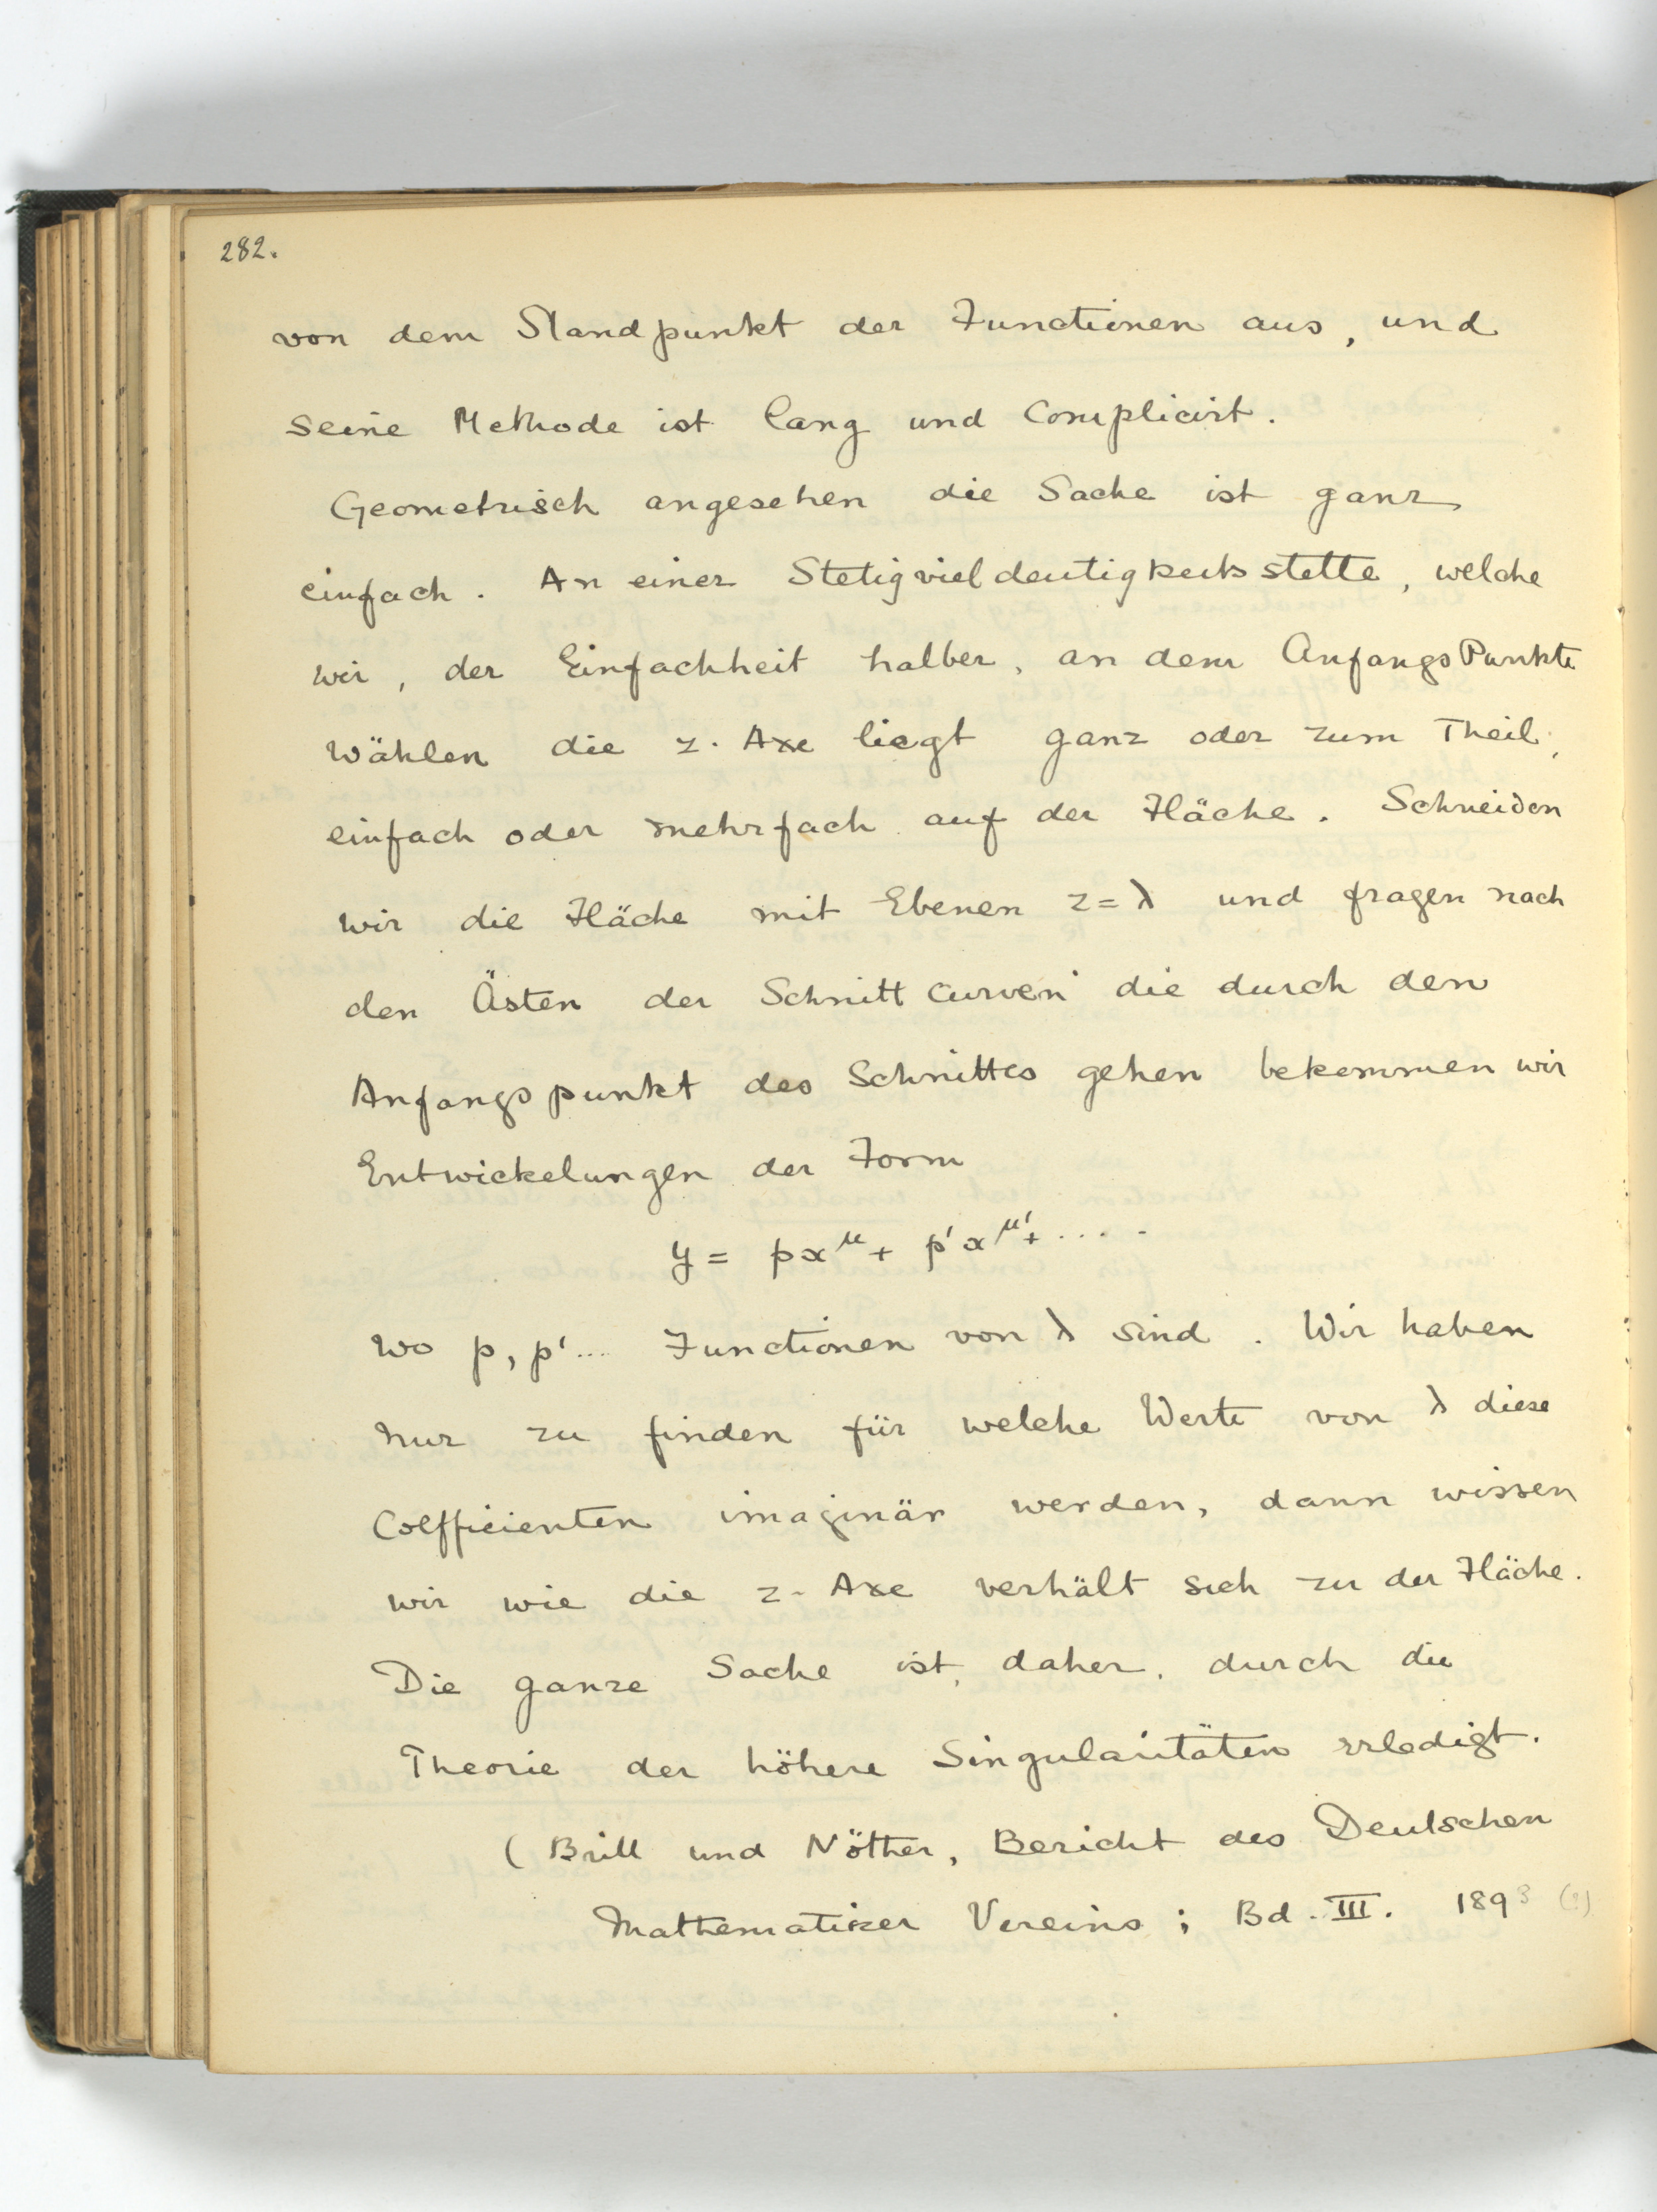 282.
von dem Standpunkt der Functionen aus, und
seine Methode ist lang und complicirt.
Geometrisch angesehen die Sache ist ganz
einfach. An einer Stetigvieldeutigkeitsstelle, welche
wir, der Einfachheit halber, an dem AnfangsPunkte
wählen die z. Axe liegt ganz oder zum Theil,
einfach oder mehrfach auf der Fläche. Schneiden
wir die Fläche mit Ebenen z=λ und fragen nach
den Ästen der Schnitt curven die durch den
Anfangspunkt des Schnittes gehen bekommen wir
Entwickelungen der Form
y = px^μ + p'x^μ' + .....
wo p, p'... Functionen von λ sind. Wir haben
nur zu finden für welche Werte von λ diese
Coefficienten imaginär werden, dann wissen
wir wie die z-Axe verhält sich zu der Fläche.
Die ganze Sache ist, daher, durch die
Theorie der höhere Singularitäten erledigt.
(Brill und Nöther, Bericht des Deutschen
Mathematiker Vereins; Bd. III. 1893 (?)